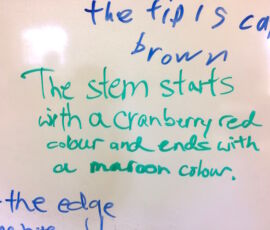 the tip is
brown
The stem starts
with a cranberry red
colour and ends with
a maroon colour.
the edge